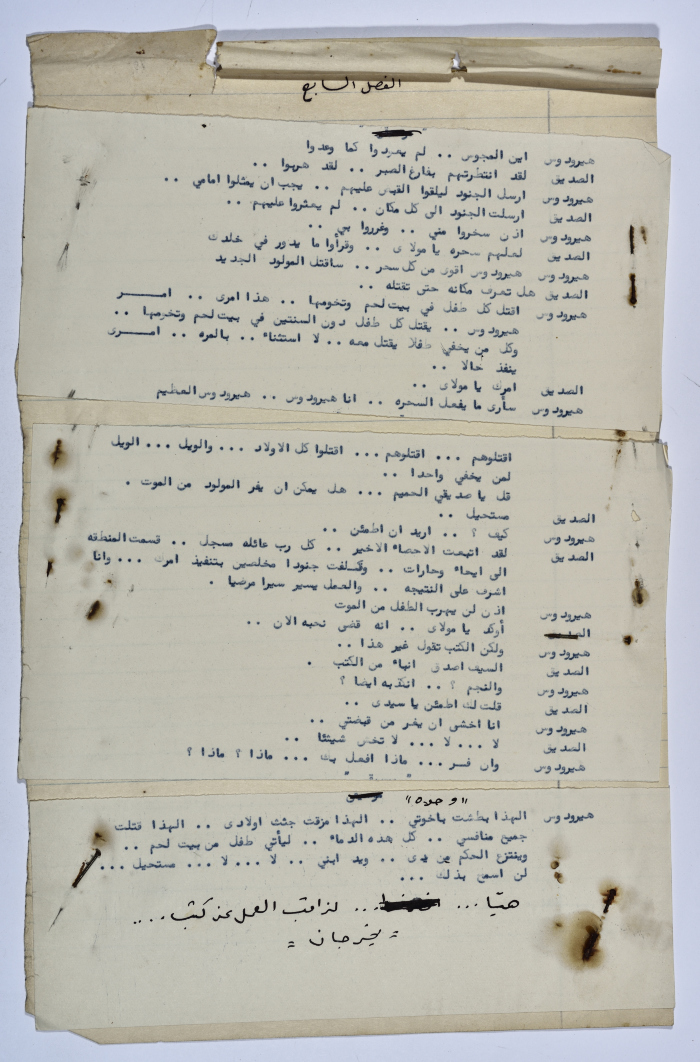 الفصل السابع
هيرودوس اين المجوس .. لم يعودوا كما وعدوا
الصديق لقد انتظرتهم بفارغ الصبر .. لقد هربوا ..
هيرودوس ارسل الجنود ليلقوا القبض عليهم .. يجب ان يمثلوا امامي ..
الصديق ارسلت الجنود الى كل مكان .. لم يعثروا عليهم ..
هيرودوس اذن سخروا مني .. وغرروا بي ..
الصديق لعلهم سحره يا مولاى .. وقرأوا ما يدور في خلدك
هيرودوس هيرودوس اقوى من كل سحر .. ساقتل المولود الجديد
الصديق هل تعرف مكانه حتى تقتله ..
هيرودوس اقتل كل طفل في بيت لحم وتخومها .. هذا امرى .. امــــر
هيرودوس .. يقتل كل طفل دون السنتين في بيت لحم وتخومها ..
وكل من يخفي طفلا يقتل معه .. لا استثناء .. بالمره .. امــــرى
ينفذ حالا ..
الصديق امرك يا مولاى ..
هيرودوس سأرى ما يفعل السحره .. انا هيرودوس .. هيرودوس العظيم
اقتلوهم ... اقتلوهم ... اقتلوا كل الاولاد ... والويل ... الويل
لمن يخفي واحدا ..
قل يا صديقي الحميم ... هل يمكن ان يفر المولود من الموت .
الصديق مستحيل ..
هيرودوس كيف ؟ .. اريد ان اطمئن ..
الصديق لقد اتبعت الاحصاء الاخير .. كل رب عائله مسجل .. قسمت المنطقه
الى احياء وحارات .. وكلفت جنودا مخلصين بتنفيذ امرك ... وانا
اشرف على النتيجه .. والعمل يسير سيرا مرضيا .
هيرودوس اذن لن يهرب الطفل من الموت
الصديق أوكد يا مولاى .. انه قضى نحبه الان ..
هيرودوس ولكن الكتب تقول غير هذا ..
الصديق السيف اصدق انباء من الكتب .
هيرودوس والنجم ؟ .. انكذبه ايضا ؟
الصديق قلت لك اطمئن يا سيدى ..
هيرودوس انا اخشى ان يفر من قبضتي ..
الصديق لا ... لا ... لا تخش شيئا ..
هيرودوس وان فر ... ماذا افعل بك ... ماذا ؟ ماذا ؟
"وحده"
هيرودوس الهذا بطشت باخوتي .. الهذا مزقت جثث اولادى .. الهذا قتلت
جميع منافسي .. كل هذه الدماء .. ليأتي طفل من بيت لحم ..
وينتزع الحكم من يدى .. ويد ابني .. لا ... لا ... مستحيل ...
لن اسمح بذلك ...
هيّا ... لنراقب العمل عن كثب ...
" يخرجان "